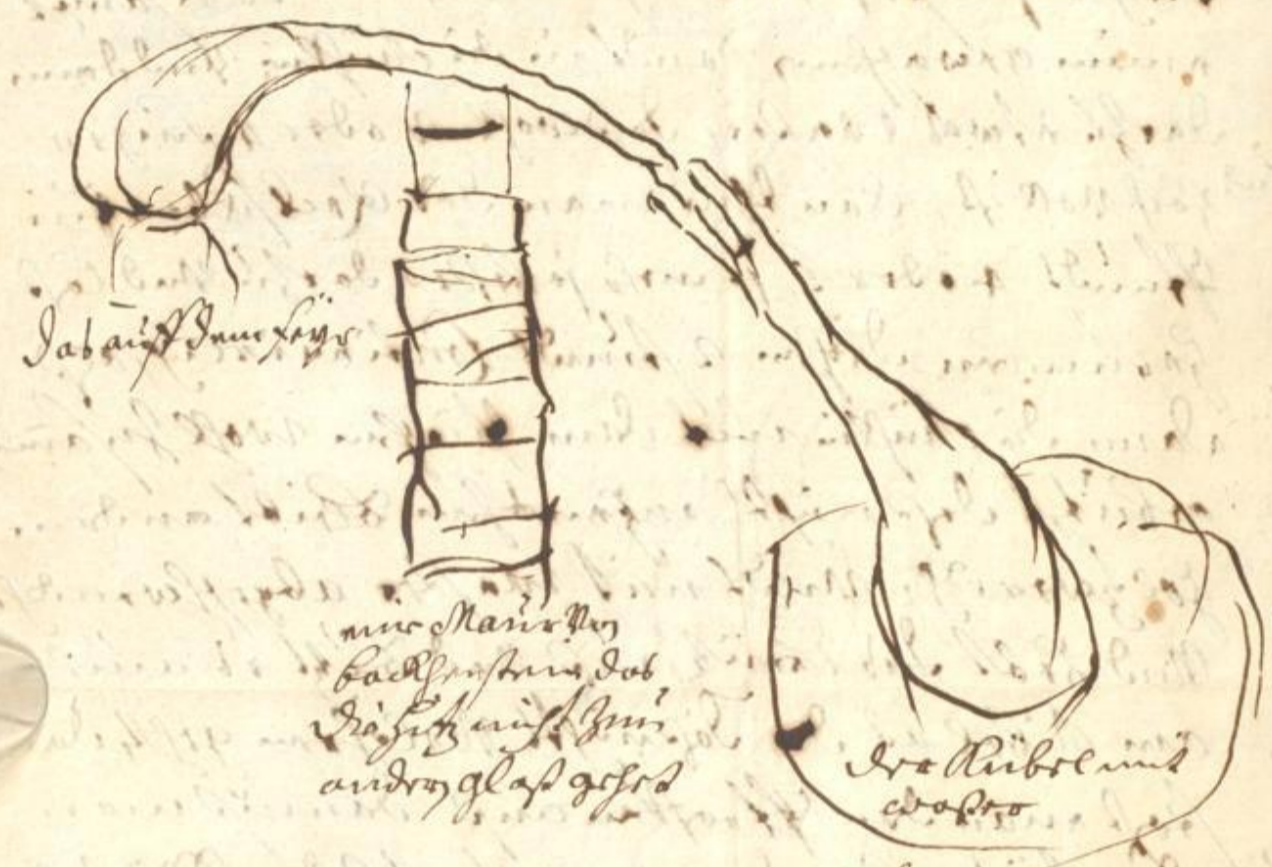 das auff dem feyr
eine Maur von
backhenstein das
die hitz nicht zum
andern glaß gehet
der Kübel mit
waßer